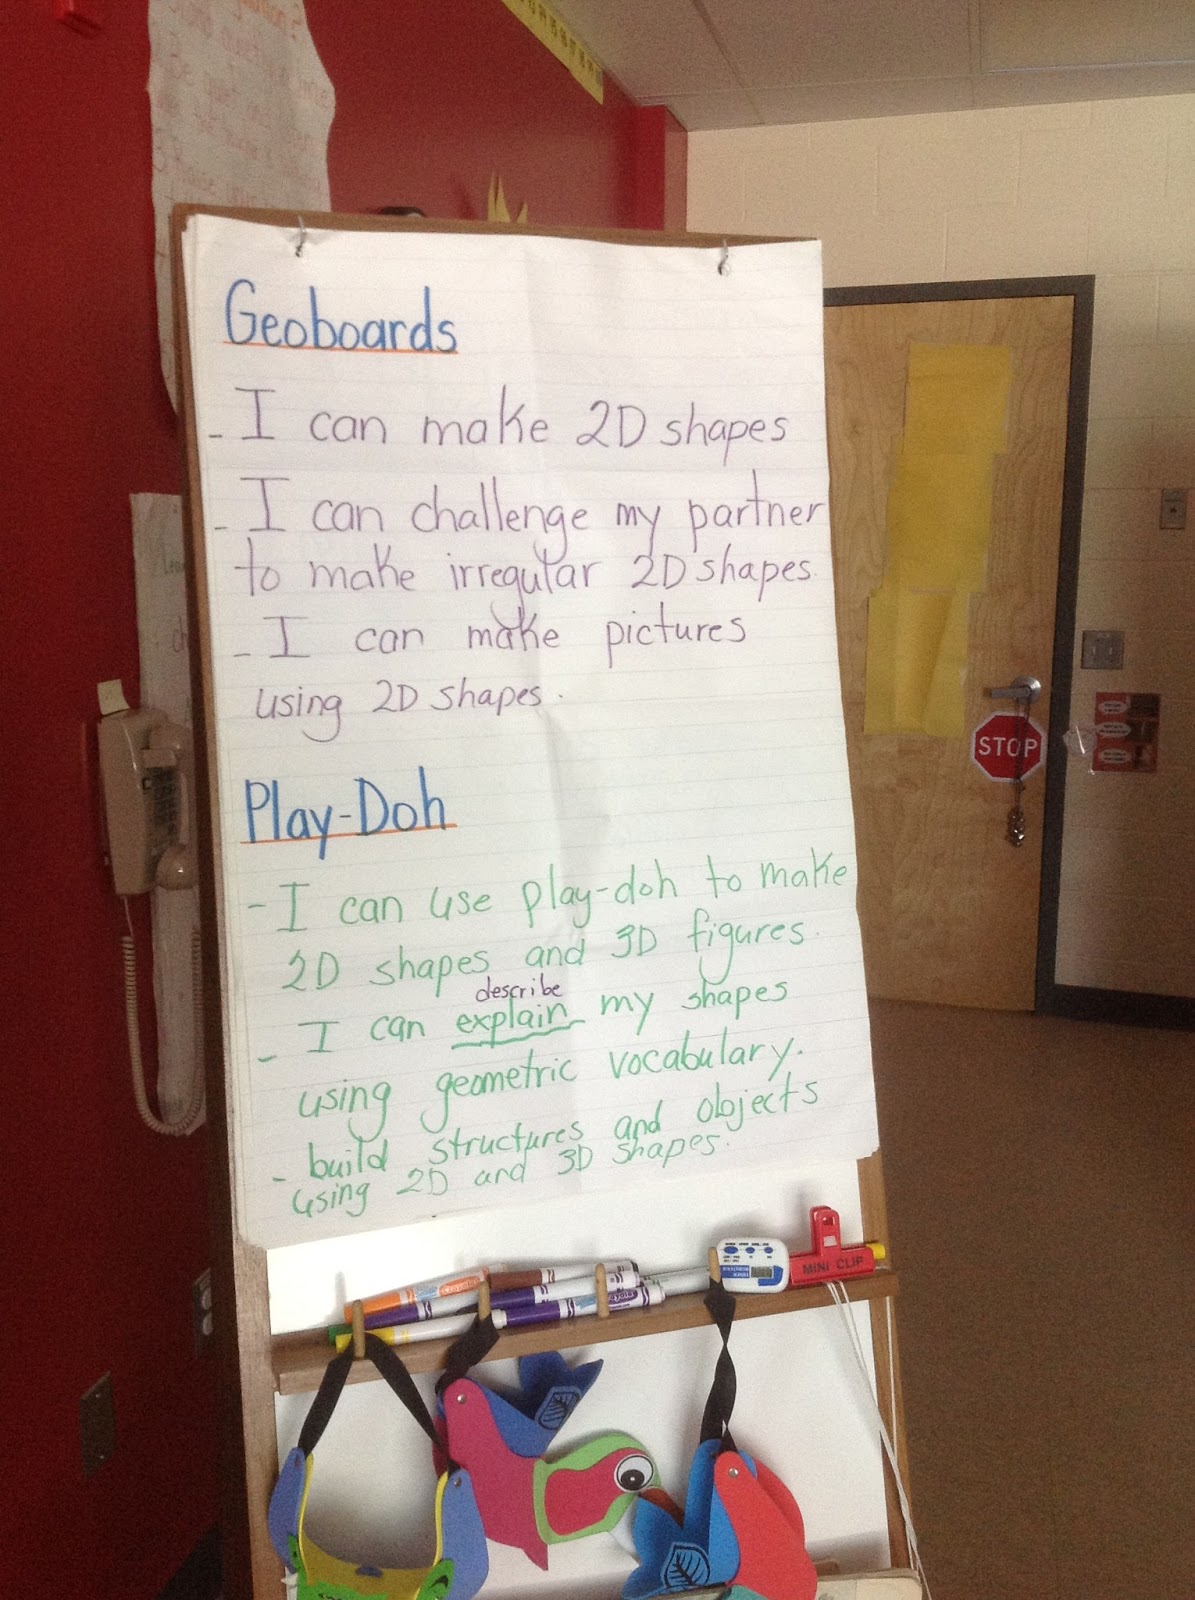 Geoboards
- I can make 2D shapes
- I can challenge my partner
to make irregular 2D shapes.
- I can make pictures
using 2D shapes.
Play-Doh
- I can use play-doh to make
2D shapes and 3D figures.
describe
- I can explain my shapes
using geometric vocabulary.
- build structures and objects
using 2D and 3D shapes.
STOP
MINI CLIP
Crayola
Crayola